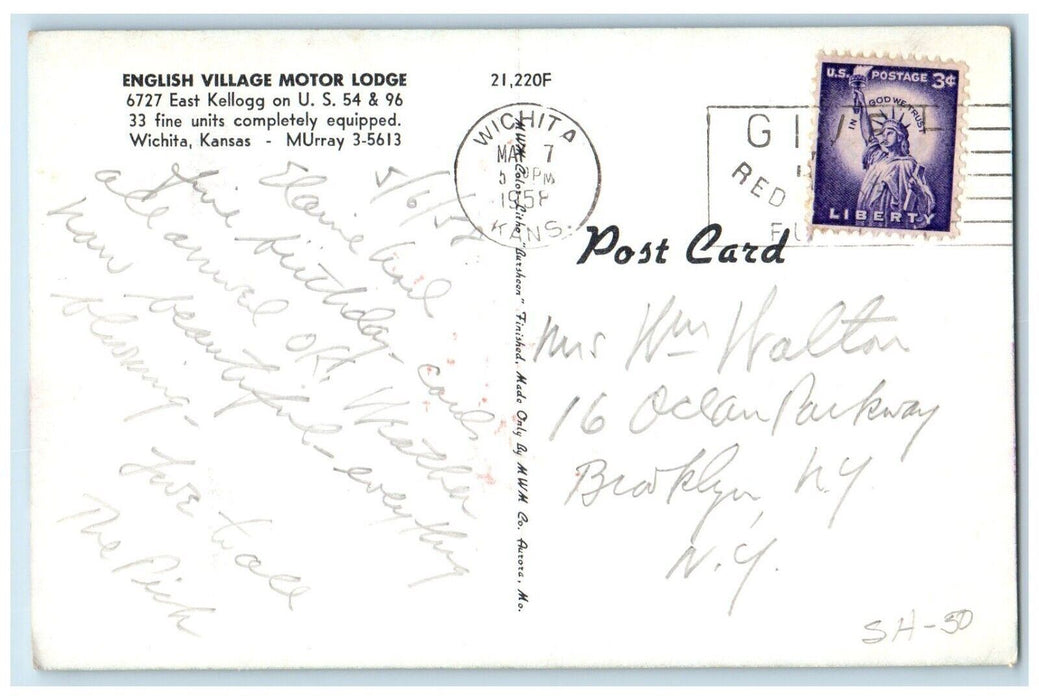 ENGLISH VILLAGE MOTOR LODGE
6727 East Kellogg on U. S. 54 & 96
33 fine units completely equipped.
Wichita, Kansas - MUrray 3-5613
21,220F
5/6/58
Elaine had
fine birthday - cards
all arrived OK. Weather
now beautiful - everything
blooming -
Love to all
The Dick
MWM Color-Litho "Bursheen" Finished, Made Only By MWM Co. Aurora, Mo.
WICHITA
MAY 7
PM
1958
KANS.
RED
U.S. POSTAGE 3¢
IN GOD WE TRUST
LIBERTY
Post Card
Mrs Wm Walton
16 Ocean Parkway
Brooklyn, N.Y.
N.Y.
SH-50